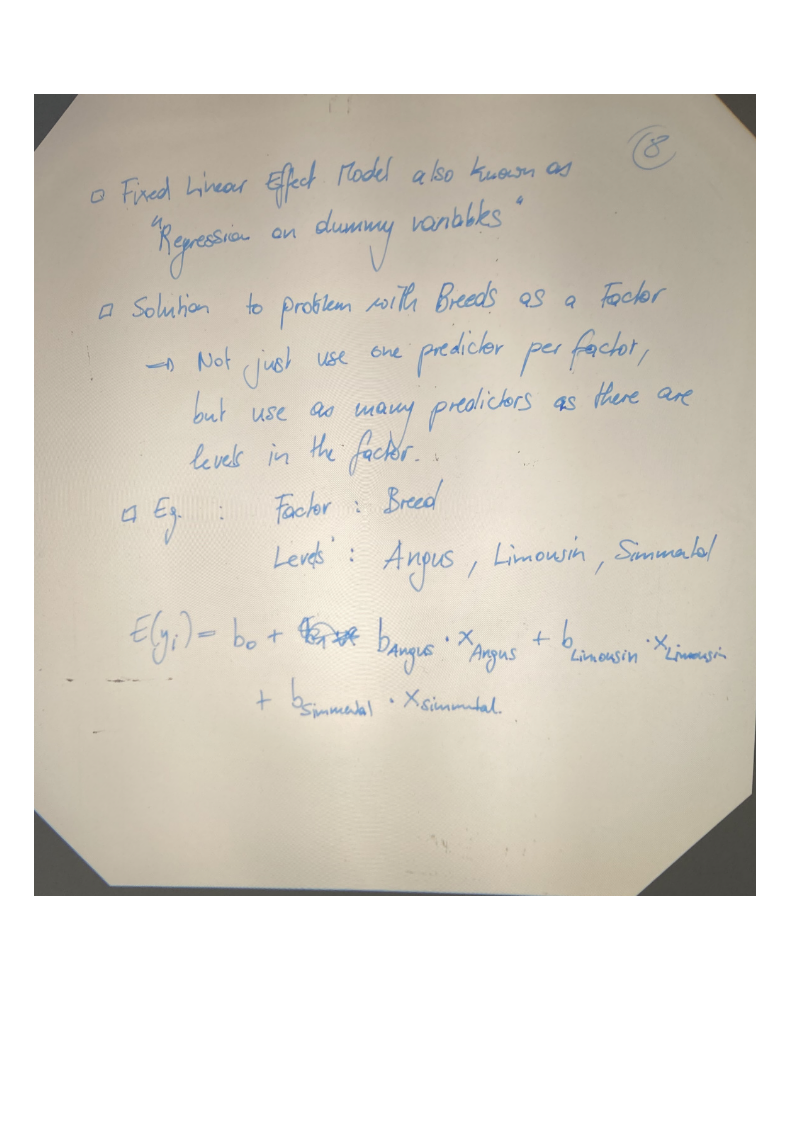 8
□ Fixed Linear Effect Model also known as
"Regression on dummy variables"
□ Solution to problem with Breeds as a Factor
→ Not just use one predictor per factor,
but use as many predictors as there are
levels in the factor.
□ Eg. : Factor : Breed
Levels : Angus, Limousin, Simmental
E(yᵢ) = b₀ + b_Angus · x_Angus + b_Limousin · x_Limousin
+ b_Simmental · x_Simmental.